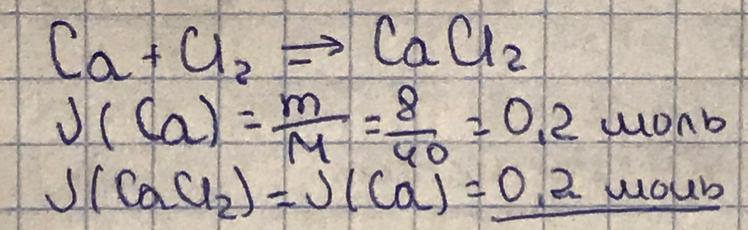 Ca + Cl₂ ⇒ CaCl₂
ν(Ca) = m/M = 8/40 = 0,2 моль
ν(CaCl₂) = ν(Ca) = 0,2 моль